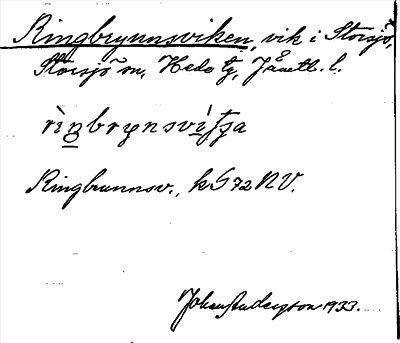 Ringbrynnsviken, vik i Storsjö,
Storsjö sn, Hede tg, Jämtl. l.
rìŋbrynsvìʃʃa
Ringbrunnsv., kS 72 NV.
Johan Andersson 1933.